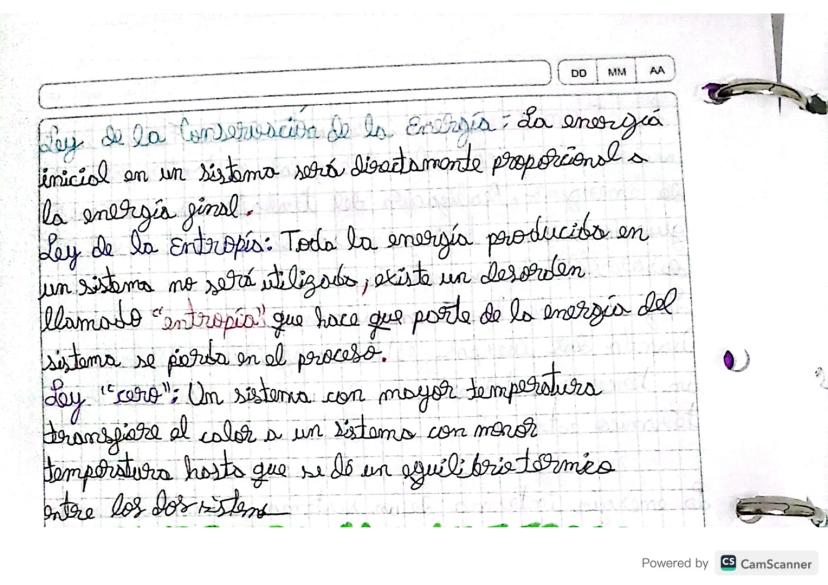 DD MM AA
Ley de la Conservación de la Energía: La energía
inicial en un sistema será directamente proporcional a
la energía final.
Ley de la Entropía: Toda la energía producida en
un sistema no será utilizada, existe un desorden
llamado "entropía" que hace que parte de la energía del
sistema se pierda en el proceso.
Ley "cero": Un sistema con mayor temperatura
transfiere el calor a un sistema con menor
temperatura hasta que se dé un equilibrio térmico
entre los dos sistema
Powered by CS CamScanner